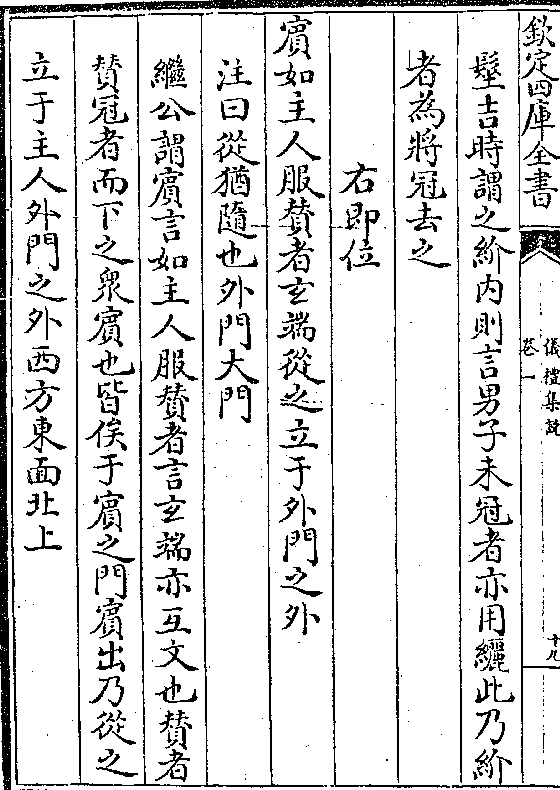 欽定四庫全書
儀禮集說
卷一
十九
髽吉時謂之紒内則言男子未冠者亦用纚此乃紒
者為將冠去之
右即位
賓如主人服贊者玄端從之立于外門之外
注曰從猶隨也外門大門
繼公謂賓言如主人服贊者言玄端亦互文也贊者
贊冠者而下之衆賓也皆俟于賓之門賓出乃從之
立于主人外門之外西方東面北上